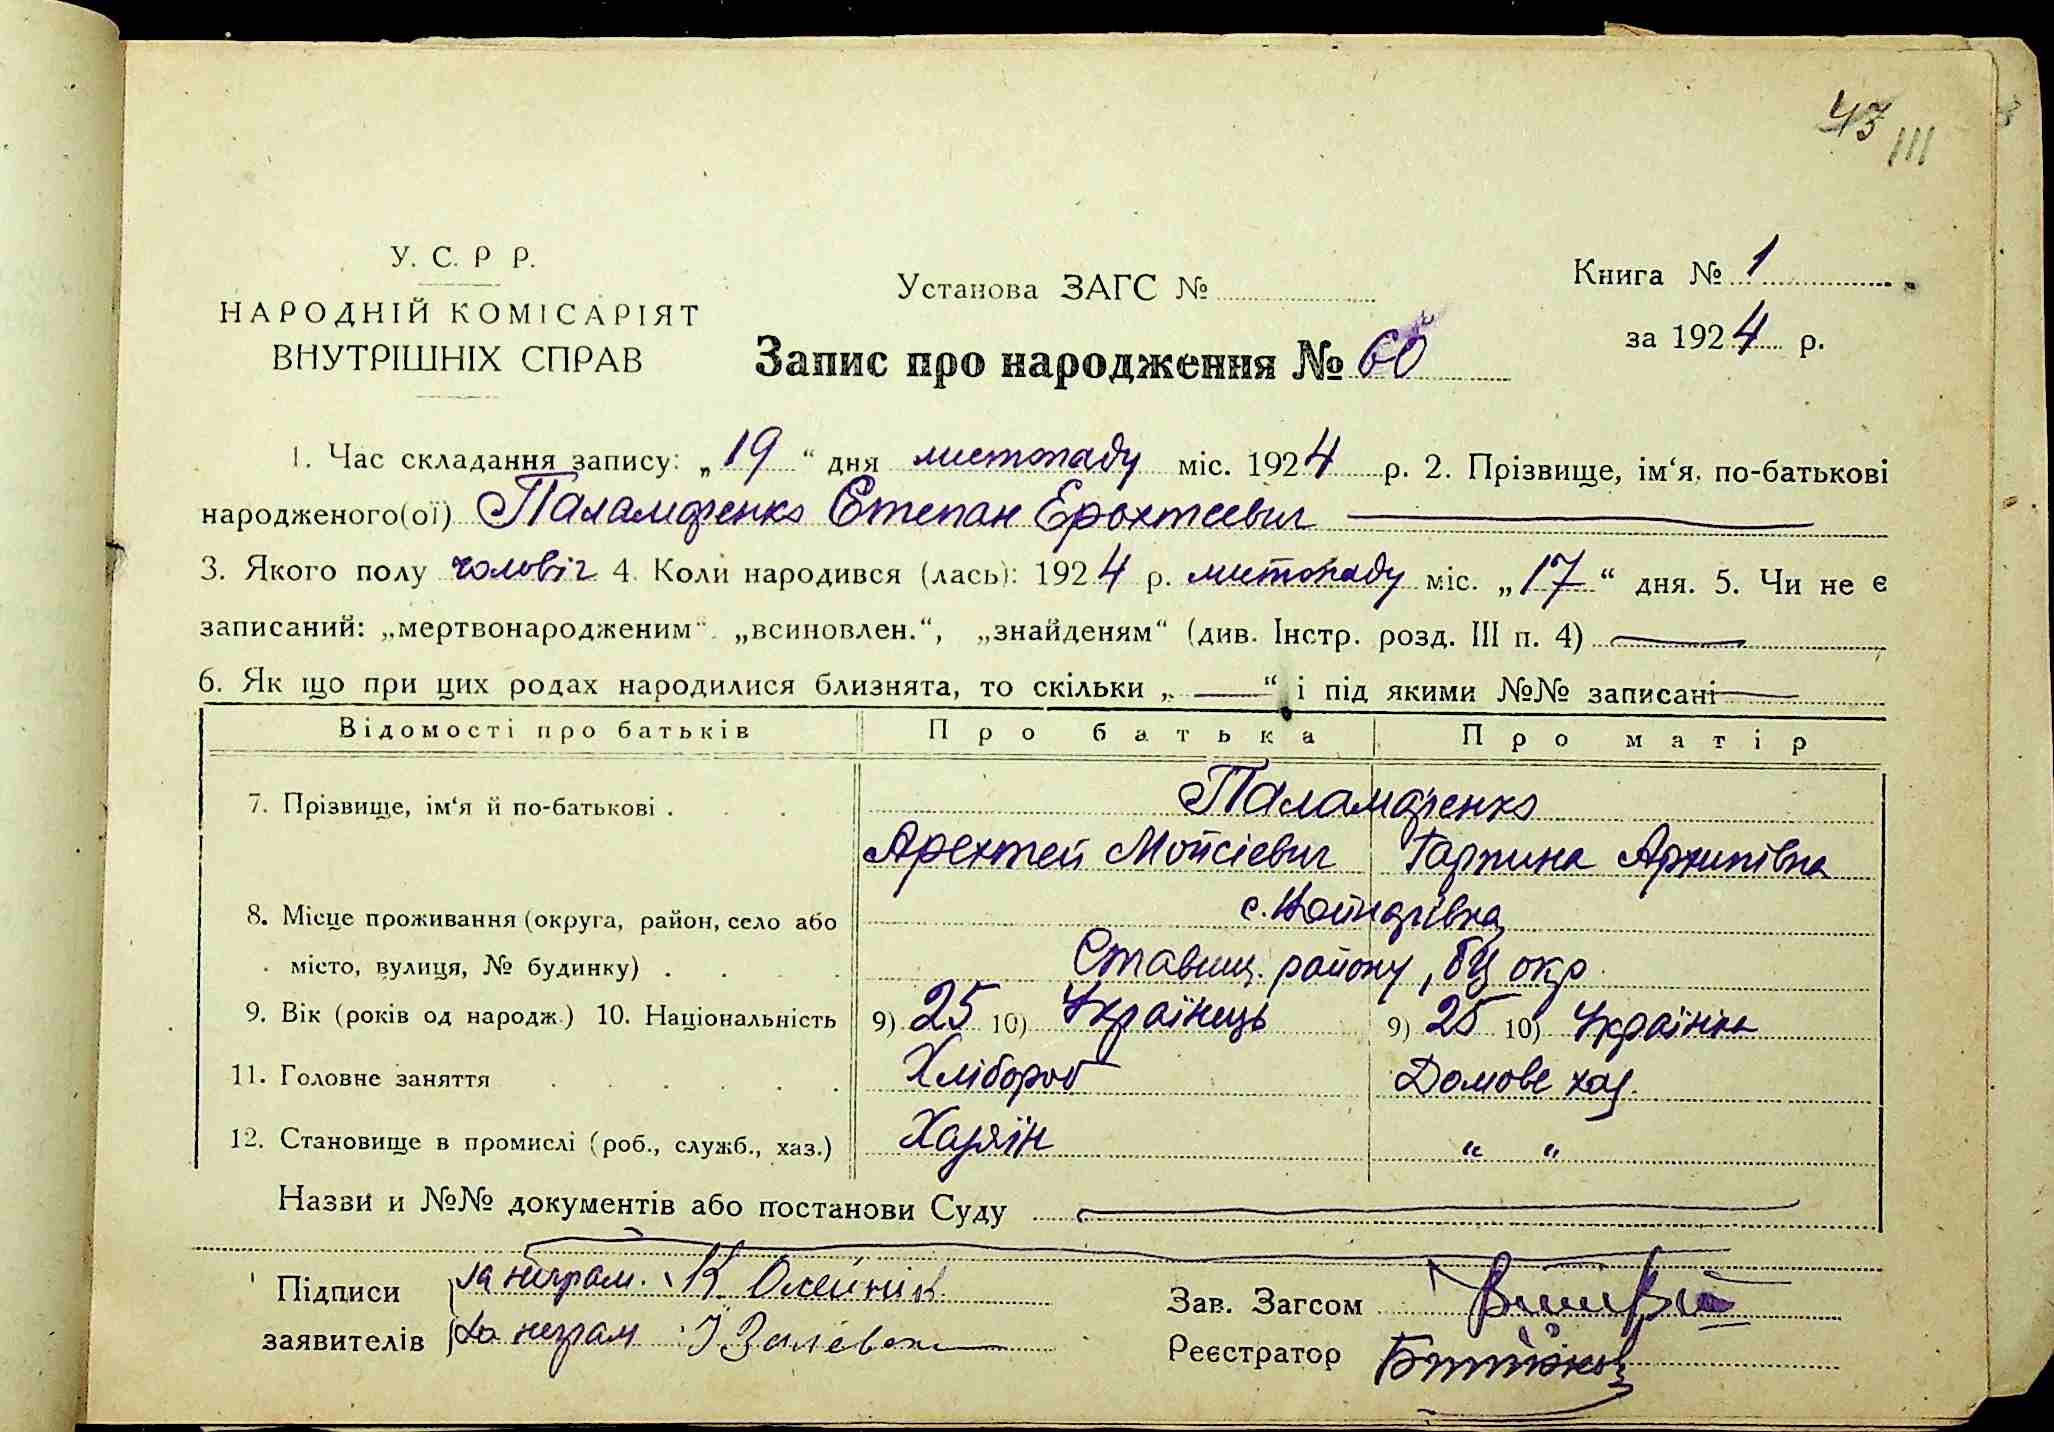 43
III
У. С. Р Р.
НАРОДНІЙ КОМІСАРІЯТ
ВНУТРІШНІХ СПРАВ
Установа ЗАГС №
Запис про народження № 60
Книга № 1
за 1924 р.
1. Час складання запису: „19“ дня листопаду міс. 1924 р. 2. Прізвище, ім‘я, по-батькові
народженого(ої) Степан
3. Якого полу чоловіч 4. Коли народився (лась): 1924 р. листопаду міс. „17“ дня. 5. Чи не є
записаний: „мертвонародженим“. „всиновлен.“, „знайденям“ (див. Інстр. розд. III п. 4)
6. Як що при цих родах народилися близнята, то скільки „ “ і під якими №№ записані
Відомості про батьків Про батька Про матір
7. Прізвище, ім‘я й по-батькові .
Мойсієвич Архипівна
8. Місце проживання (округа, район, село або
с.
місто, вулиця, № будинку) . Ставищ. району, БЦ окр.
9. Вік (років од народж.) 10. Національність 9) 25 10) Українець 9) 25 10) Українка
11. Головне заняття Хлібороб Домове хаз.
12. Становище в промислі (роб., служб., хаз.) Хазяїн „ „
Назви и №№ документів або постанови Суду
Підписи за неграм. К Олейник
заявителів за неграм
Зав. Загсом
Реєстратор